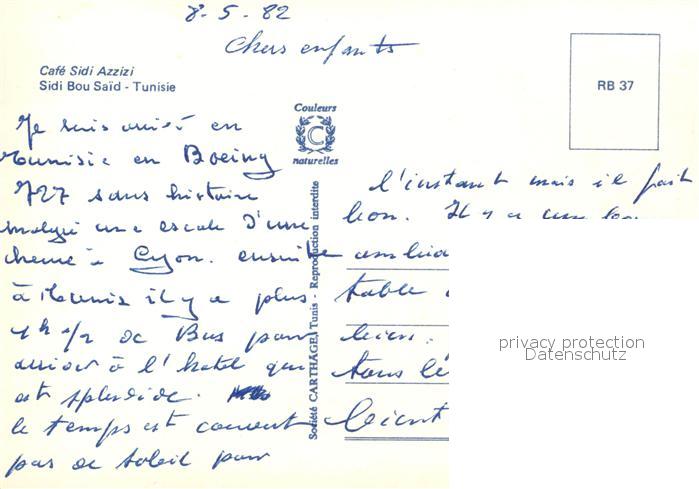 8-5-82
Chers enfants
Café Sidi Azzizi
Sidi Bou Saïd - Tunisie
RB 37
Couleurs
C
naturelles
Société CARTHAGE, Tunis - Reproduction interdite
Je suis arrivé en
Tunisie en Boeing
727 sans histoire
malgré une escale d'une
heure à Lyon. ensuite
à Tunis il y a plus
1h 1/2 de Bus pour
arriver à l'hotel qui
est splendide.
le temps est couvert
pas de soleil pour
l'instant mais il fait
bon. Il y a une
table
bien.
tous
bientôt
privacy protection
Datenschutz